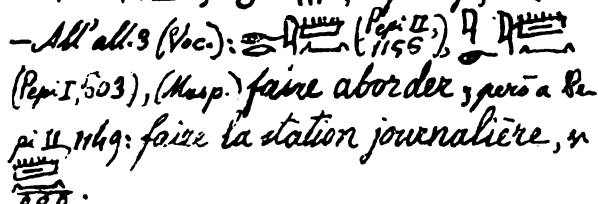 — All'all. 3 (Voc.): 𓂋𓇋𓏠𓈖 (Pepi II, 1156), 𓇋𓂋𓇋𓏠𓈖
(Pepi I, 503), (Masp.) faire aborder; però a Pe
pi II, 1149: faire la station journalière, n